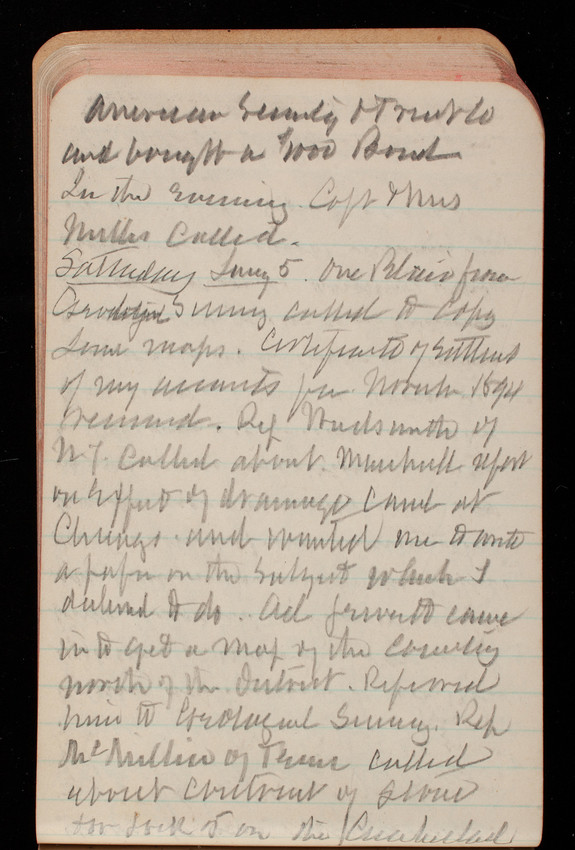 American Security & Trust Co
and bought a $1000 Bond
In the Evening Capt & Mrs
Miller Called.
Saturday Jany 5. One Blair from
Geological Survey called to copy
some maps. Certificate of Settlmt
of my accounts for Novmbr 1894
received. Rep Wadsworth of
N.Y. Called about Marshall report
on Effect of drainage canal at
Chicago and wanted me to write
a paper on the Subject which I
declined to do. Col came
in to get a map of the Country
north of the District. Referred
him to Geological Survey. Rep
McMillin of Tenn called
about Contract of stone
for Lock 5 on the Cumberland